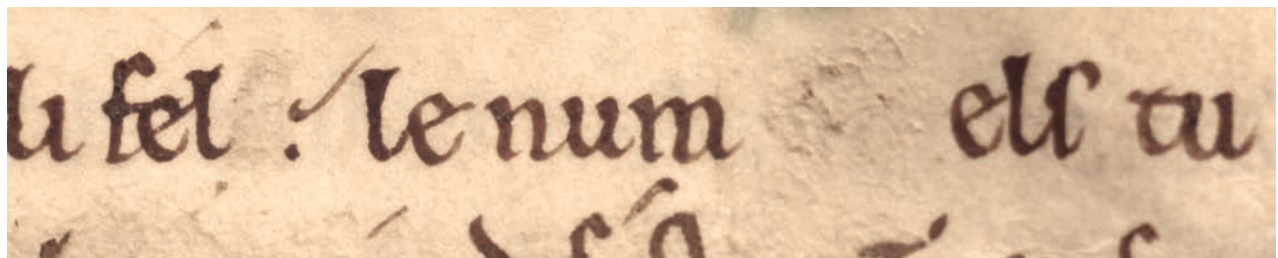 li fel : lenum elſ tu